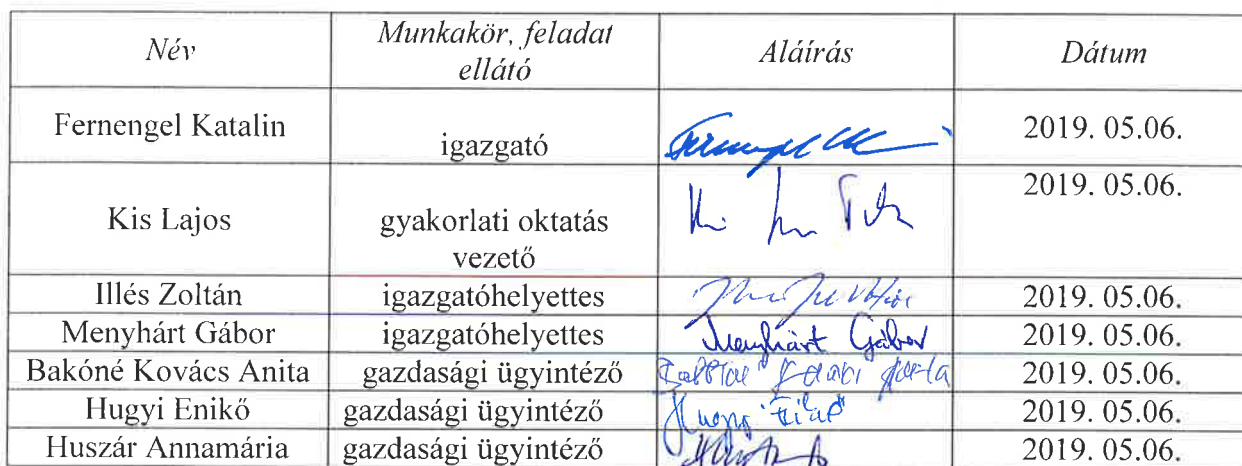 Név Munkakör, feladat Aláírás Dátum
ellátó
Fernengel Katalin igazgató 2019. 05.06.
Kis Lajos gyakorlati oktatás 2019. 05.06.
vezető
Illés Zoltán igazgatóhelyettes 2019. 05.06.
Menyhárt Gábor igazgatóhelyettes Menyhárt Gábor 2019. 05.06.
Bakóné Kovács Anita gazdasági ügyintéző 2019. 05.06.
Hugyi Enikő gazdasági ügyintéző 2019. 05.06.
Huszár Annamária gazdasági ügyintéző 2019. 05.06.